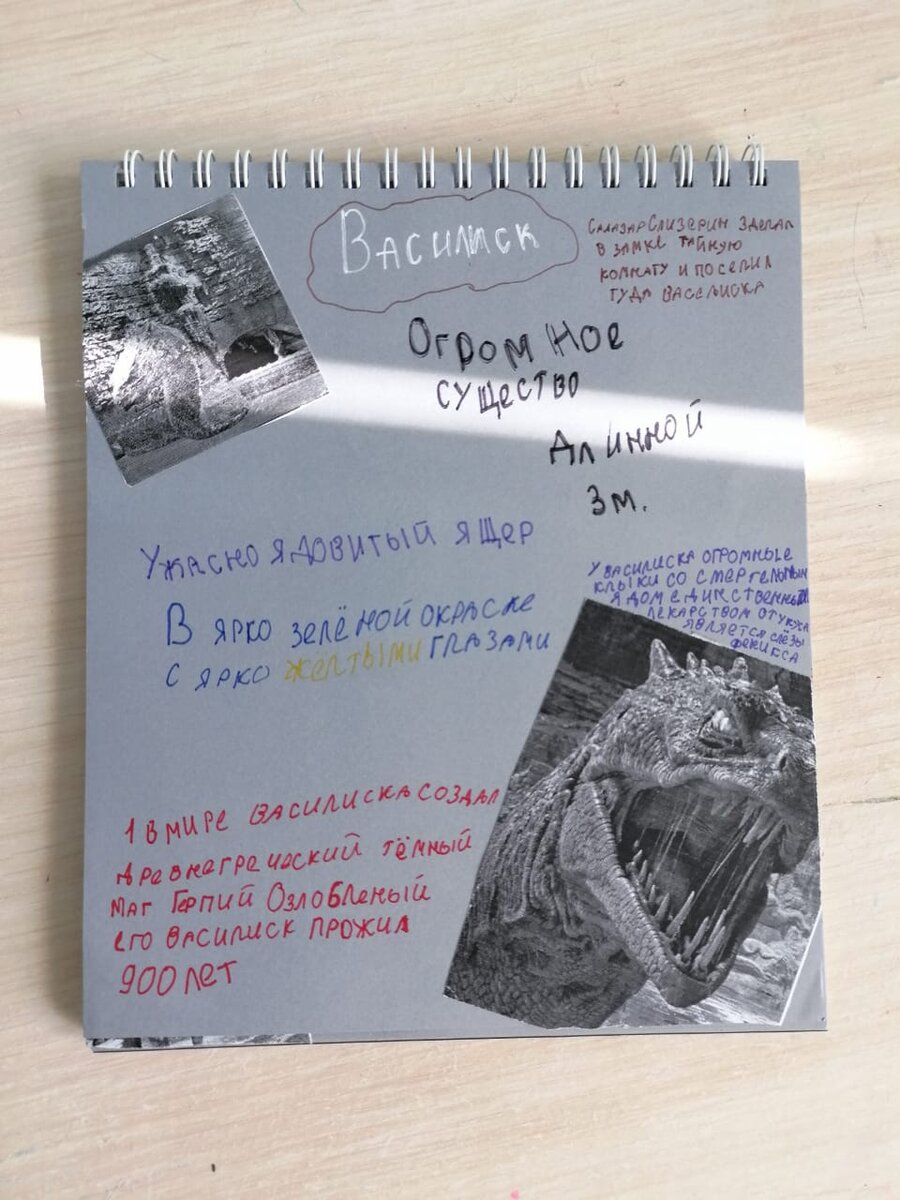 Василиск
Салазар Слизерин зделал
в замке тайную
комнату и поселил
туда васелиска
Огромное
существо
длинной
3м.
Ужасно ядовитый ящер
В ярко зелёной окраске
с ярко жёлтыми глазами
У василиска огромные
клыки со смертельным
ядом единственным
лекарством от укуса
является слёзы
феникса
1 в мире василиска создал
древнегреческий тёмный
маг Герпий Озлобленый
его василиск прожил
900 лет